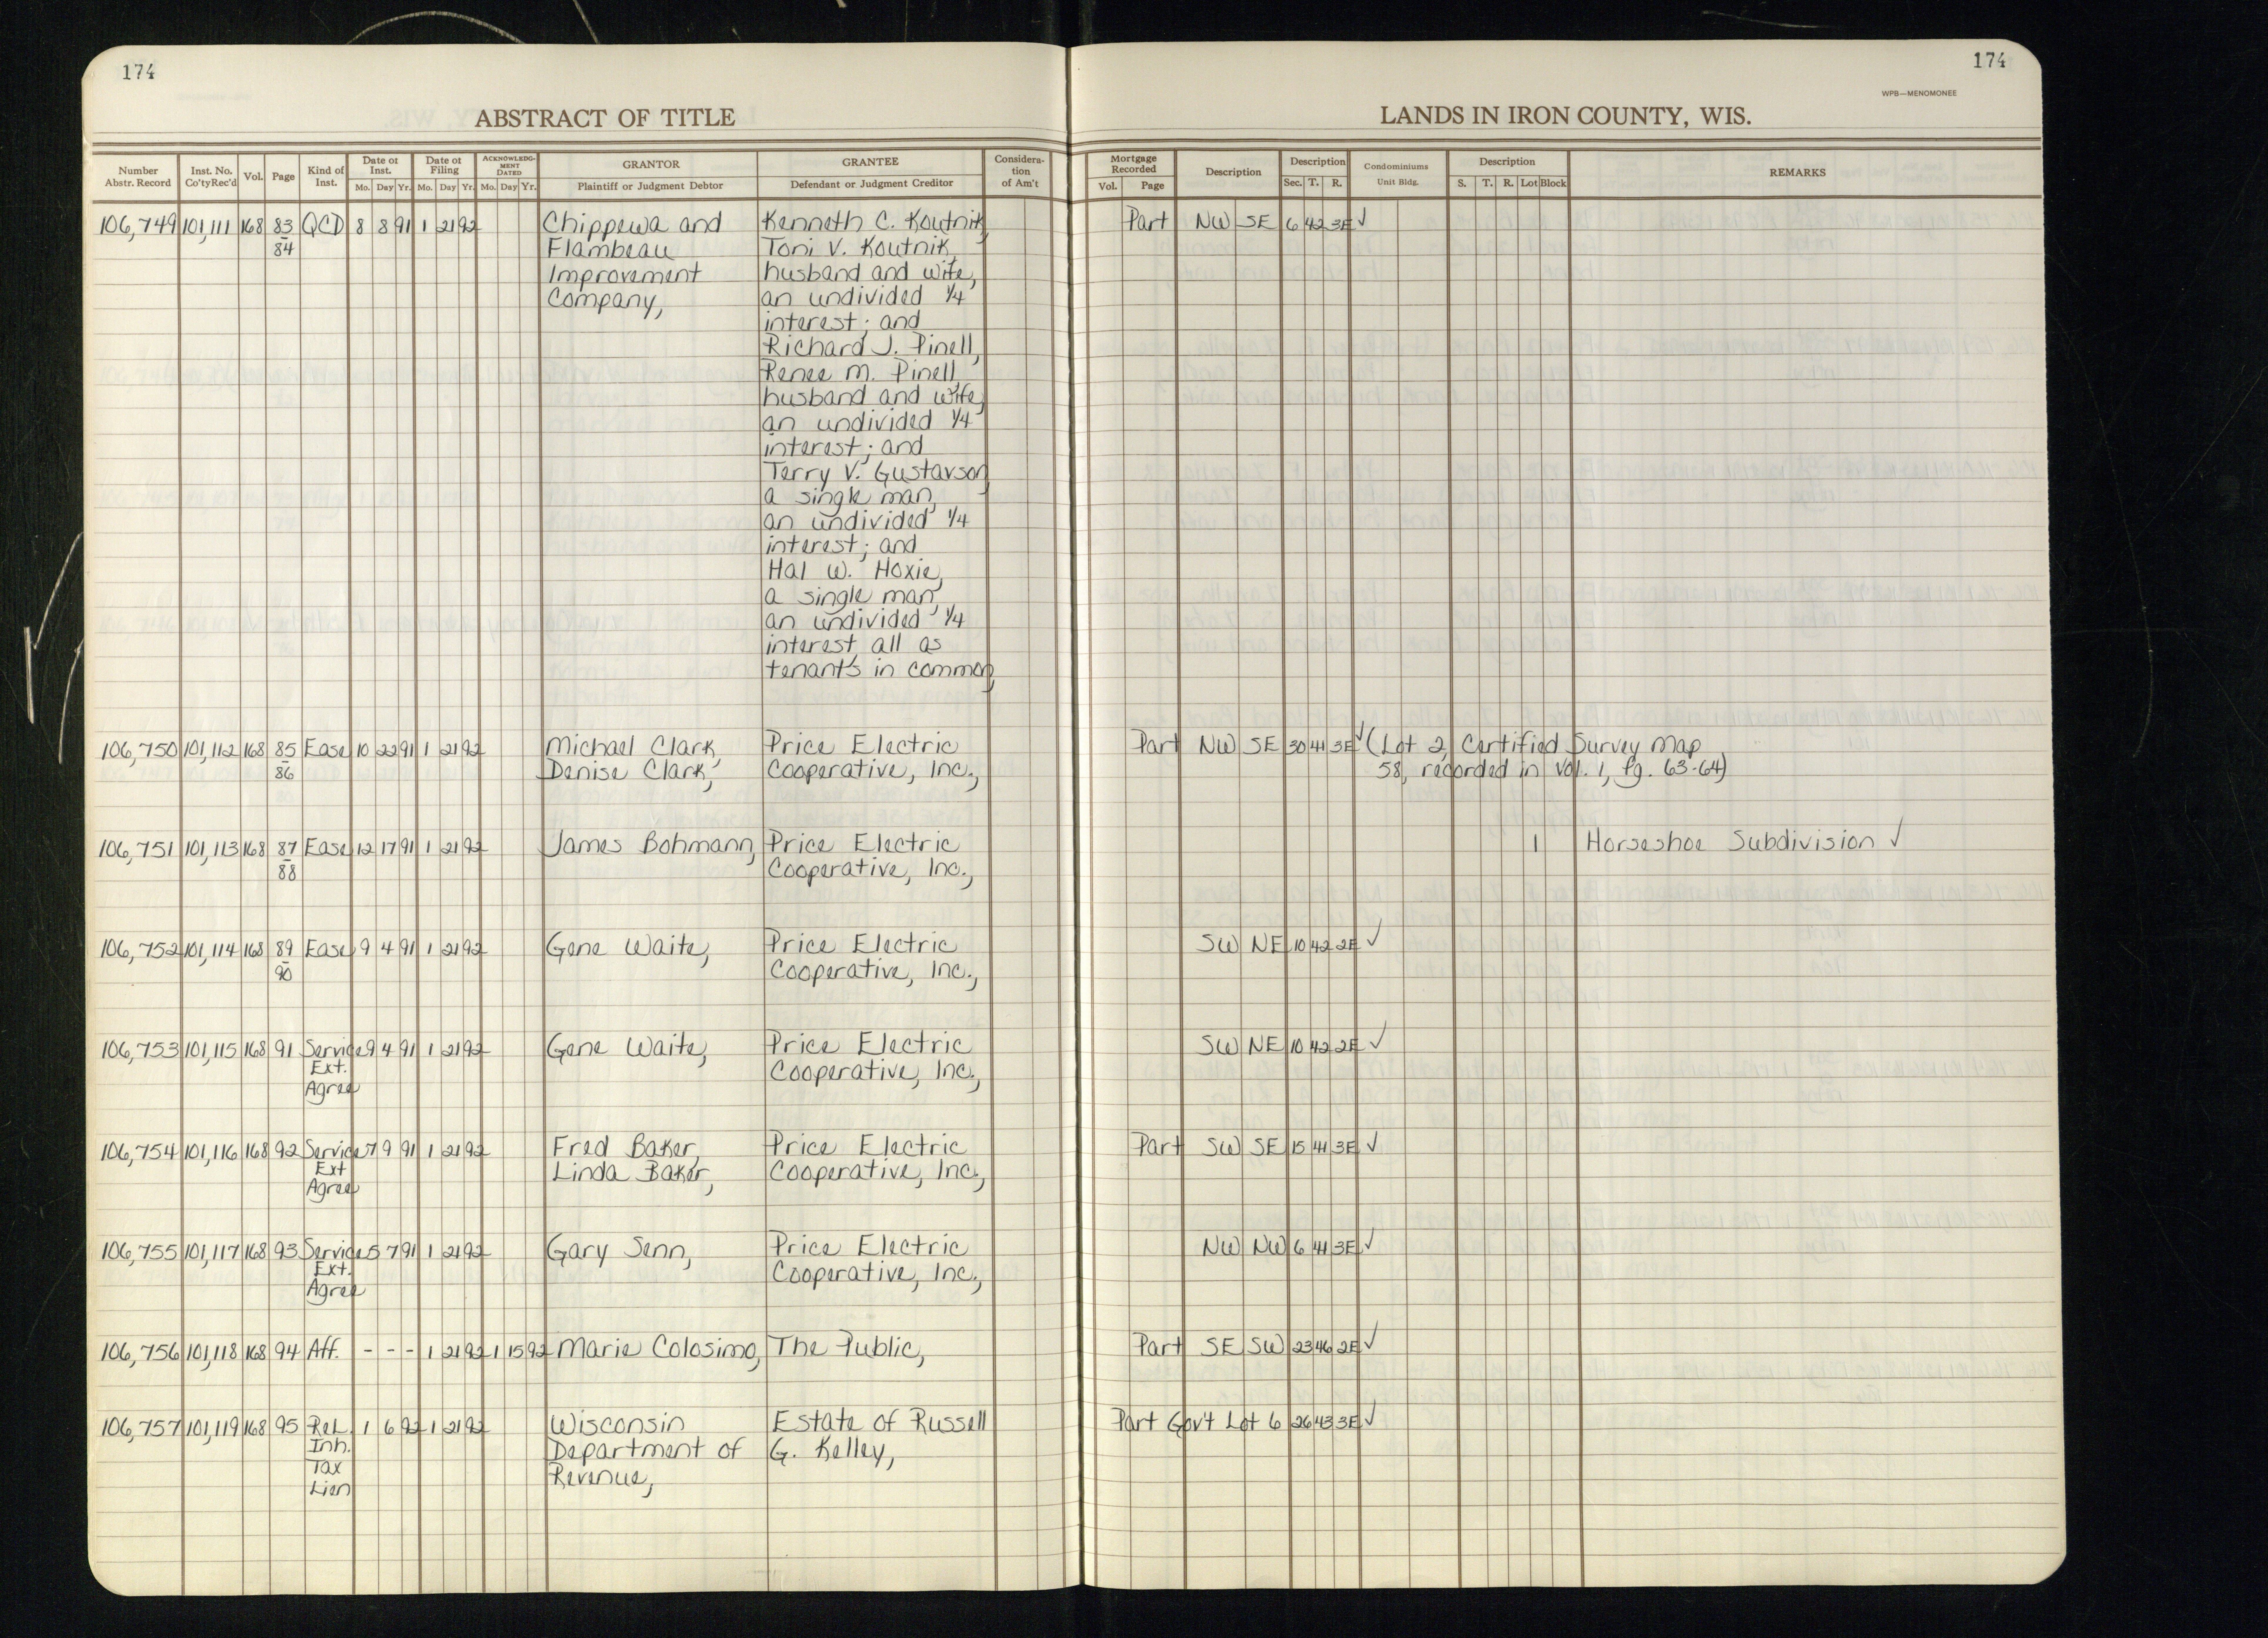 174
174
WPB—MENOMONEE
ABSTRACT OF TITLE
LANDS IN IRON COUNTY, WIS.
Number Abstr. Record | Inst. No. Co'ty Rec'd | Vol. | Page | Kind of Inst. | Date of Inst. Mo. Day Yr. | Date of Filing Mo. Day Yr. | ACKNOWLEDGMENT DATED Mo. Day Yr. | GRANTOR Plaintiff or Judgment Debtor | GRANTEE Defendant or Judgment Creditor | Consideration of Am't | Mortgage Recorded Vol. Page | Description | Description Sec. T. R. | Condominiums Unit Bldg. | Description S. T. R. Lot Block | REMARKS
106,749 101,111 168 83 QCD 8 8 91 1 21 92 Chippewa and Kenneth C. Koutnik, Part NW SE 6 42 3E ✓
84 Flambeau Toni V. Koutnik,
Improvement husband and wife,
Company, an undivided 1/4
interest; and
Richard J. Pinell,
Renee M. Pinell,
husband and wife,
an undivided 1/4
interest; and
Terry V. Gustavson,
a single man,
an undivided 1/4
interest; and
Hal W. Hoxie,
a single man,
an undivided 1/4
interest, all as
tenants in common,
106,750 101,112 168 85 Ease 10 22 91 1 21 92 Michael Clark, Price Electric Part NW SE 30 41 3E ✓ (Lot 2, Certified Survey Map
86 Denise Clark, Cooperative, Inc., 58, recorded in Vol. 1, pg. 63-64)
106,751 101,113 168 87 Ease 12 17 91 1 21 92 James Bohmann, Price Electric 1 Horseshoe Subdivision ✓
88 Cooperative, Inc.,
106,752 101,114 168 89 Ease 9 4 91 1 21 92 Gene Waite, Price Electric SW NE 10 42 2E ✓
90 Cooperative, Inc.,
106,753 101,115 168 91 Service 9 4 91 1 21 92 Gene Waite, Price Electric SW NE 10 42 2E ✓
Ext. Cooperative, Inc.,
Agree
106,754 101,116 168 92 Service 7 9 91 1 21 92 Fred Baker, Price Electric Part SW SE 15 41 3E ✓
Ext Linda Baker, Cooperative, Inc.,
Agree
106,755 101,117 168 93 Service 5 7 91 1 21 92 Gary Senn, Price Electric NW NW 6 41 3E ✓
Ext. Cooperative, Inc.,
Agree
106,756 101,118 168 94 Aff. - - - 1 21 92 1 15 92 Marie Colosimo, The Public, Part SE SW 23 46 2E ✓
106,757 101,119 168 95 Rel. 1 6 92 1 21 92 Wisconsin Estate of Russell Part Gov't Lot 6 26 43 3E ✓
Inh. Department of G. Kelley,
Tax Revenue,
Lien